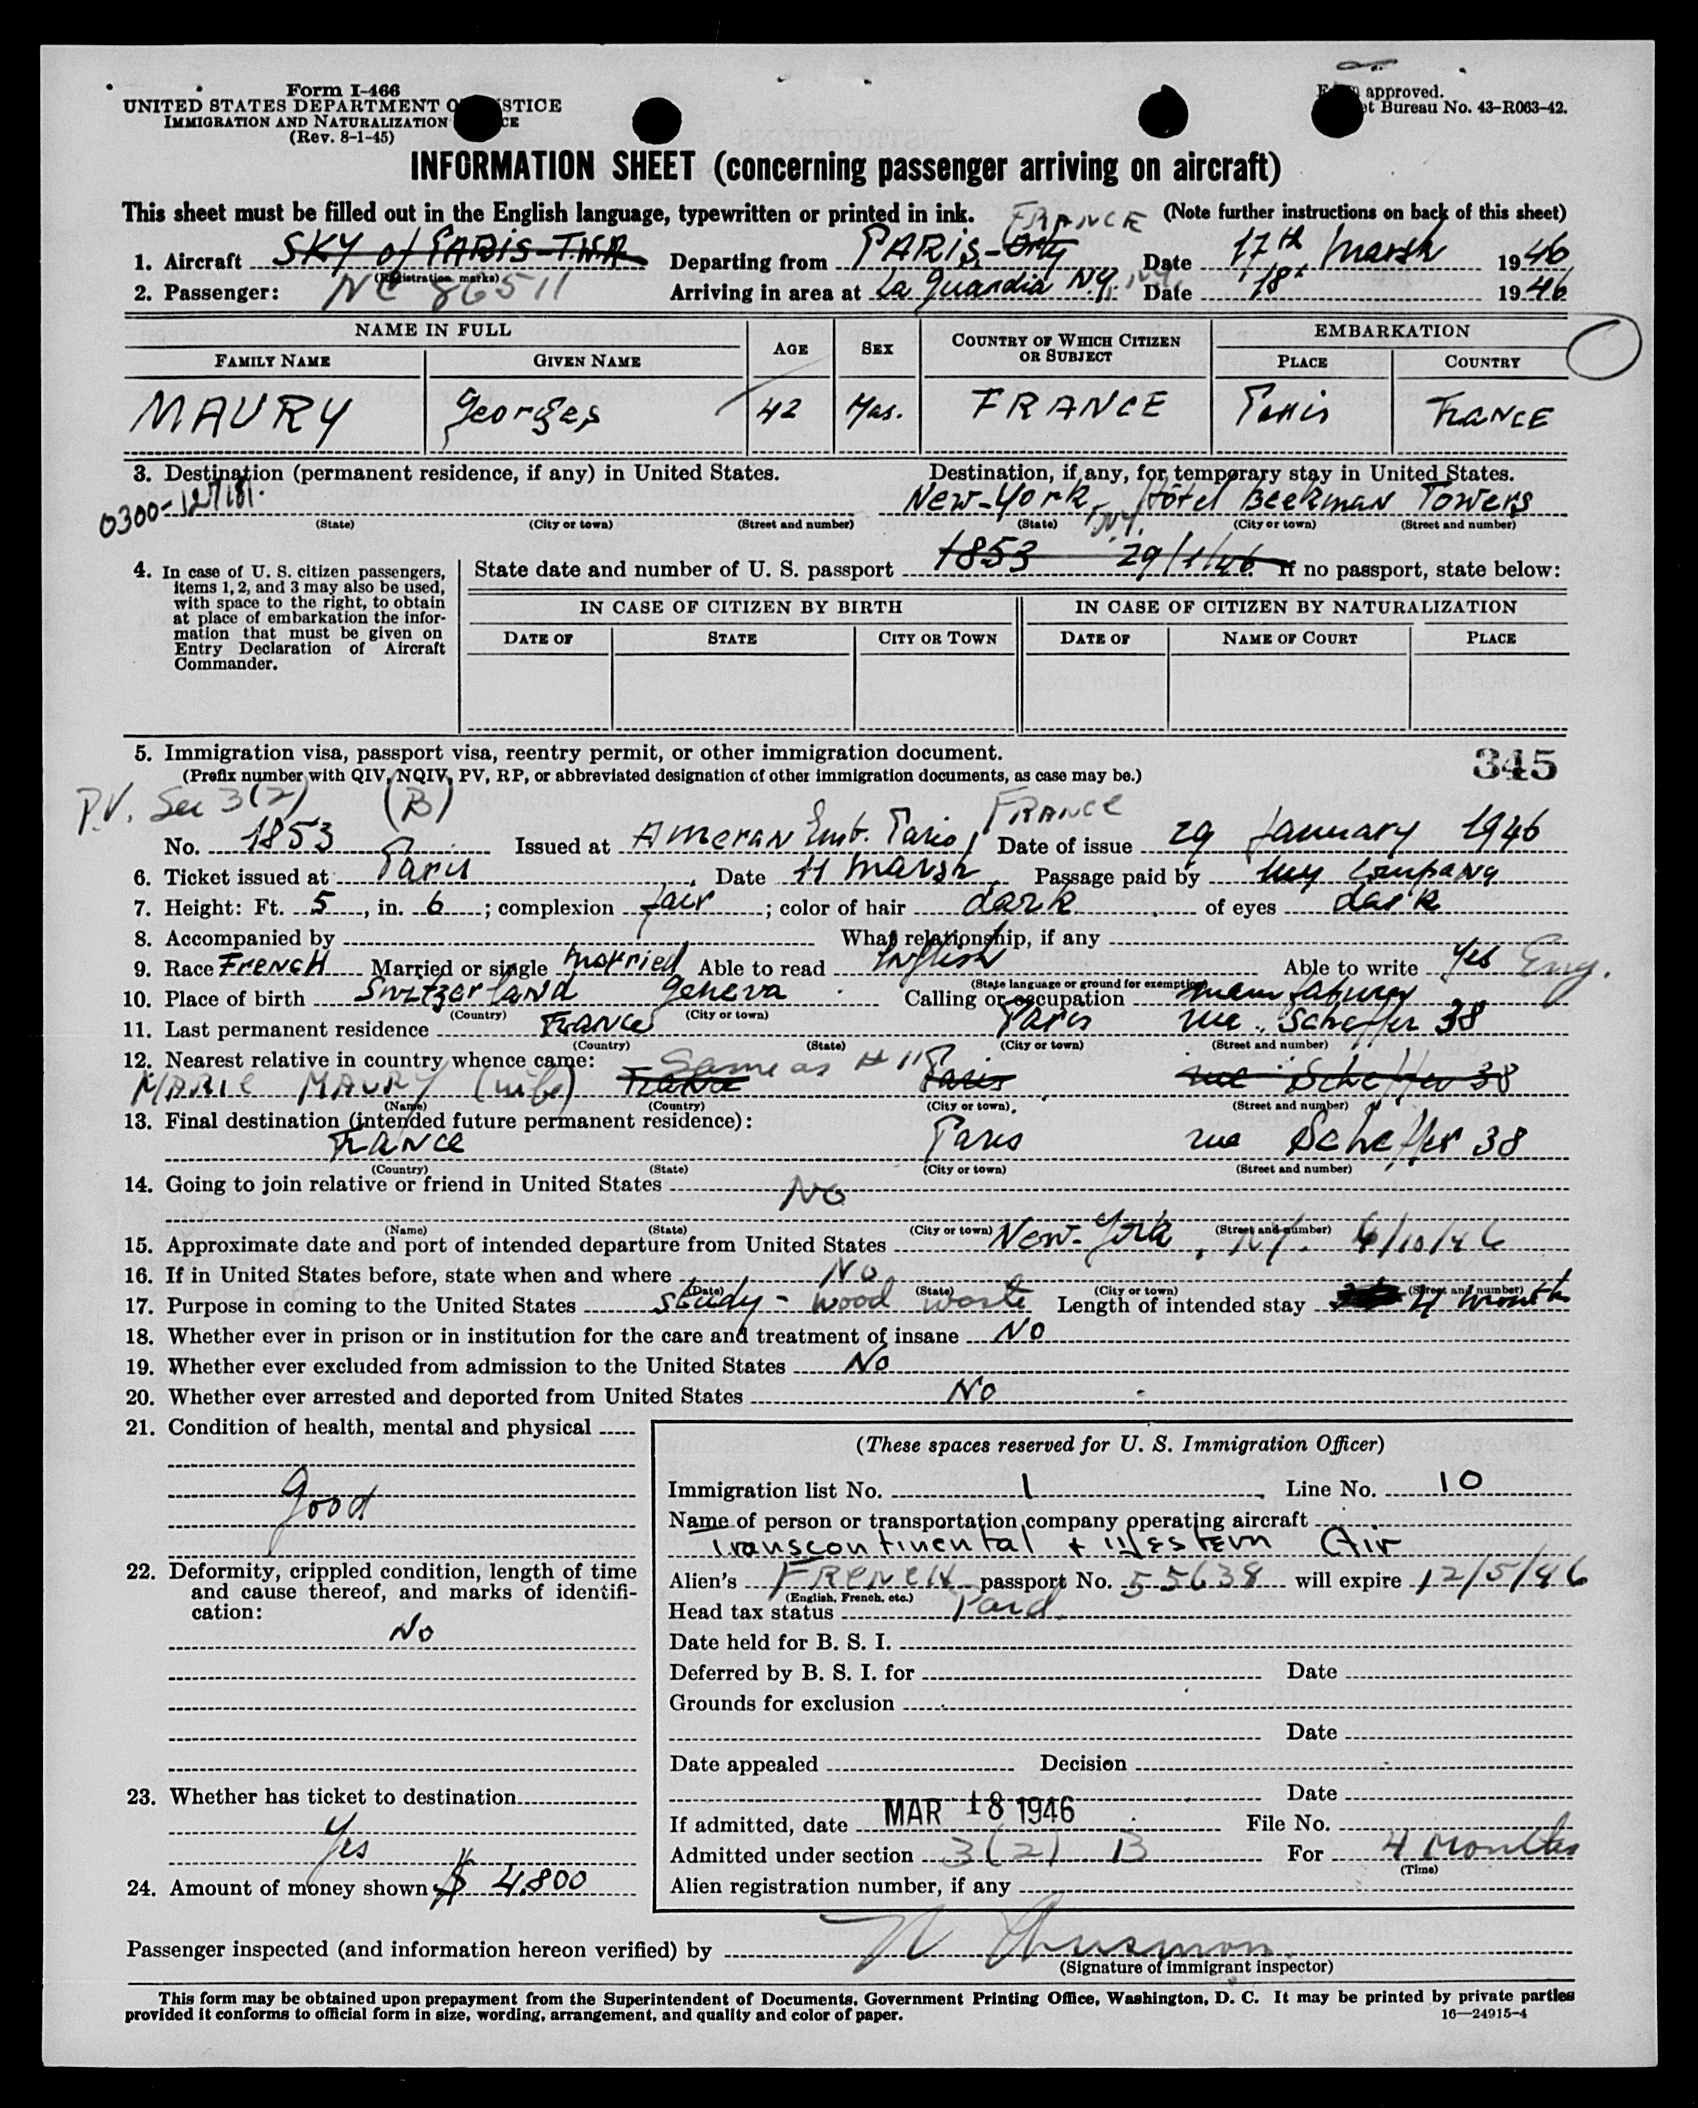 Form I-466
UNITED STATES DEPARTMENT OF JUSTICE
IMMIGRATION AND NATURALIZATION SERVICE
(Rev. 8-1-45)
Form approved.
Budget Bureau No. 43-R063-42.
INFORMATION SHEET (concerning passenger arriving on aircraft)
This sheet must be filled out in the English language, typewritten or printed in ink. (Note further instructions on back of this sheet)
FRANCE
1. Aircraft SKY of PARIS-T.W.A Departing from PARIS-Orly Date 17th Marsh 1946
(Registration marks)
2. Passenger: NC 86511 Arriving in area at La Guardia N.Y. N.Y. Date 18 1946
NAME IN FULL AGE SEX COUNTRY OF WHICH CITIZEN OR SUBJECT EMBARKATION
FAMILY NAME GIVEN NAME PLACE COUNTRY
MAURY Georges 42 Mas. FRANCE Paris FRANCE
3. Destination (permanent residence, if any) in United States. Destination, if any, for temporary stay in United States.
0300-127181. New-York, N.Y. Hôtel Beekman Towers
(State) (City or town) (Street and number) (State) (City or town) (Street and number)
4. In case of U. S. citizen passengers, items 1, 2, and 3 may also be used, with space to the right, to obtain at place of embarkation the information that must be given on Entry Declaration of Aircraft Commander.
State date and number of U. S. passport 1853 29/1/46. If no passport, state below:
IN CASE OF CITIZEN BY BIRTH IN CASE OF CITIZEN BY NATURALIZATION
DATE OF STATE CITY OR TOWN DATE OF NAME OF COURT PLACE
5. Immigration visa, passport visa, reentry permit, or other immigration document. 345
(Prefix number with QIV, NQIV, PV, RP, or abbreviated designation of other immigration documents, as case may be.)
P.V. Sec 3(2) (B) FRANCE
No. 1853 Issued at Ameran Emb. Paris, Date of issue 29 January 1946
6. Ticket issued at Paris Date 11 Marsh Passage paid by my Company
7. Height: Ft. 5, in. 6; complexion fair; color of hair dark of eyes dark
8. Accompanied by What relationship, if any
9. Race FRENCH Married or single married Able to read English Able to write Yes Eng.
(State language or ground for exemption)
10. Place of birth Switzerland Geneva Calling or occupation
(Country) (City or town)
11. Last permanent residence France Paris rue Scheffer 38
(Country) (State) (City or town) (Street and number)
12. Nearest relative in country whence came: Same as #11
MARIE MAURY (wife) France Paris rue Scheffer 38
(Name) (Country) (City or town) (Street and number)
13. Final destination (intended future permanent residence):
FRANCE Paris rue Scheffer 38
(Country) (State) (City or town) (Street and number)
14. Going to join relative or friend in United States No
(Name) (State) (City or town) (Street and number)
15. Approximate date and port of intended departure from United States New-York, N.Y. 6/10/46
16. If in United States before, state when and where No
(Date) (State) (City or town) (Street and number)
17. Purpose in coming to the United States study - wood waste Length of intended stay 4 month
18. Whether ever in prison or in institution for the care and treatment of insane No
19. Whether ever excluded from admission to the United States No
20. Whether ever arrested and deported from United States No
21. Condition of health, mental and physical
good
22. Deformity, crippled condition, length of time and cause thereof, and marks of identification:
No
23. Whether has ticket to destination
Yes
24. Amount of money shown $ 4.800
(These spaces reserved for U. S. Immigration Officer)
Immigration list No. 1 Line No. 10
Name of person or transportation company operating aircraft
Transcontinental & Western Air
Alien's FRENCH passport No. 55638 will expire 12/5/46
(English, French, etc.)
Head tax status Paid.
Date held for B. S. I.
Deferred by B. S. I. for Date
Grounds for exclusion
Date
Date appealed Decision
Date
If admitted, date MAR 18 1946 File No.
Admitted under section 3(2) B For 4 Months
(Time)
Alien registration number, if any
Passenger inspected (and information hereon verified) by
(Signature of immigrant inspector)
This form may be obtained upon prepayment from the Superintendent of Documents, Government Printing Office, Washington, D. C. It may be printed by private parties
provided it conforms to official form in size, wording, arrangement, and quality and color of paper. 16—24915-4